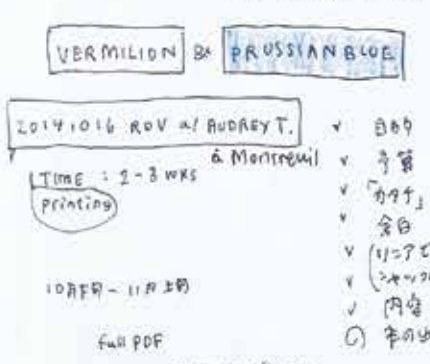 VERMILION & PRUSSIAN BLUE
20141016 RDV a/ AUDREY T.
à Montreuil
TIME : 2-3 WKS
printing
10月下旬 - 11月上旬
full PDF
目的
予算
「カタチ」
余白
(リニアで
(シャッフル
内容